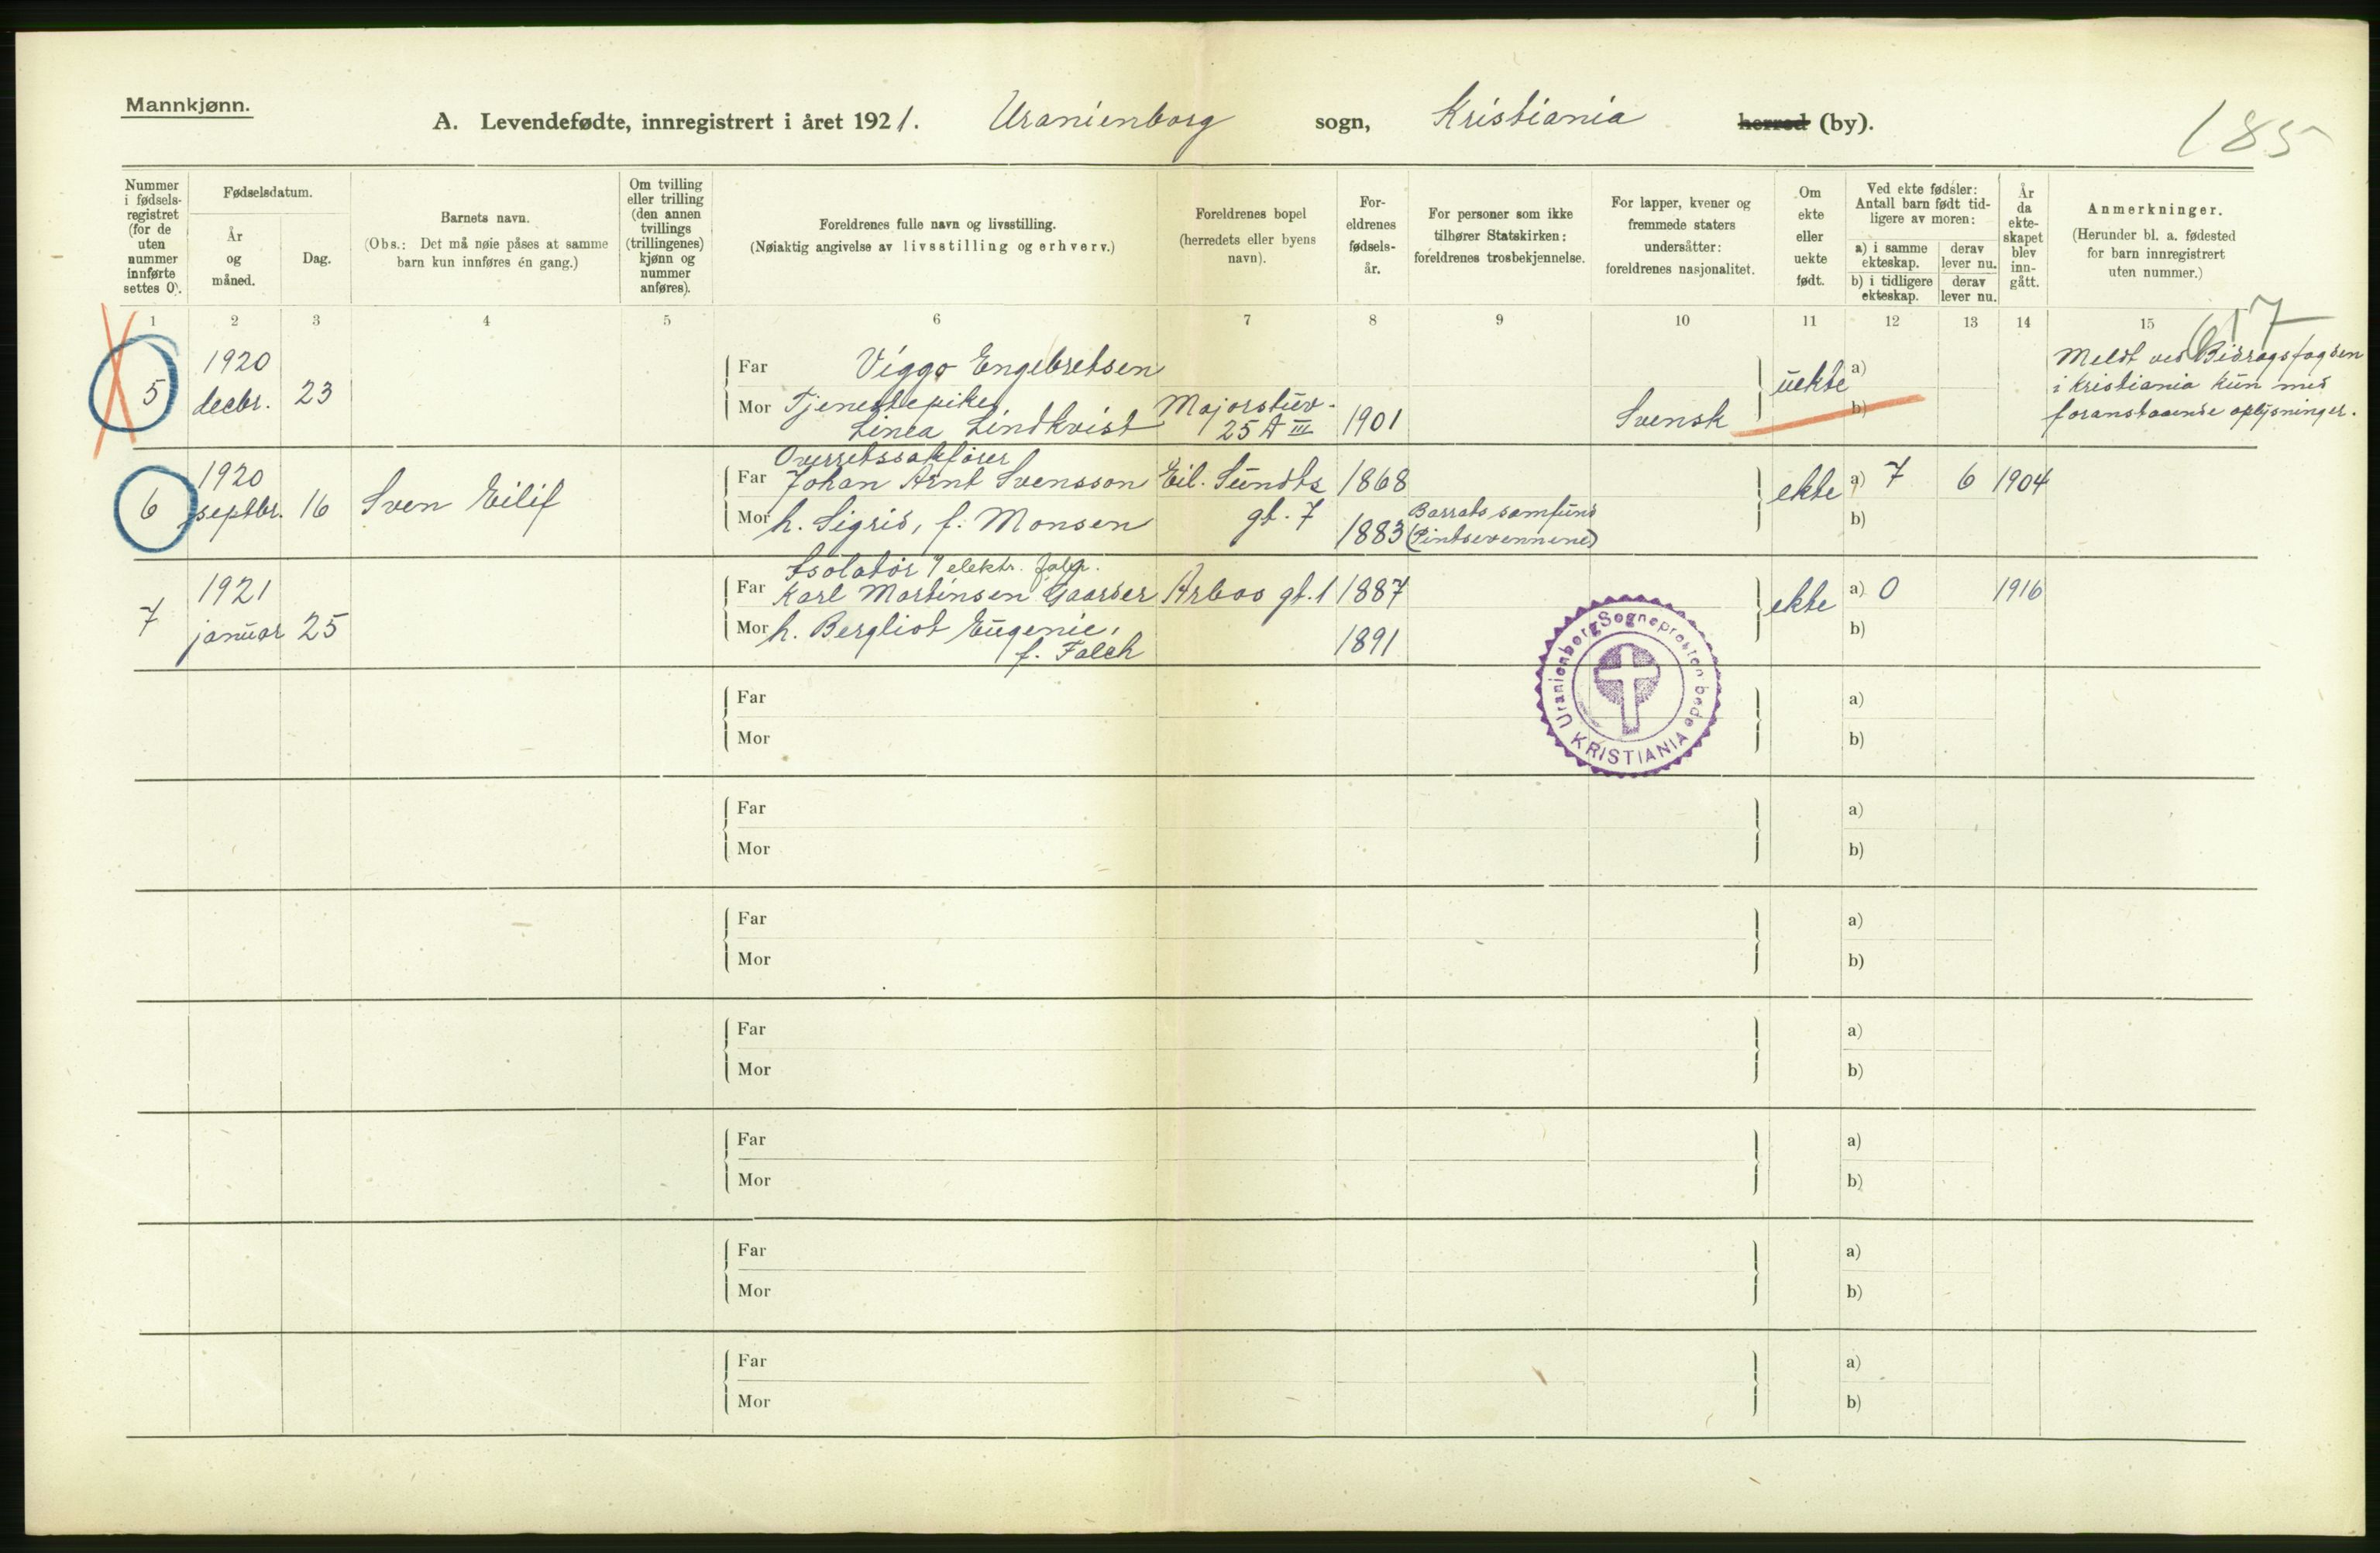 Mannkjønn.
A. Levendefødte, innregistrert i året 1921. Uranienborg sogn, Kristiania herred (by).
185
Nummer i fødselsregistret (for de uten nummer innførte settes 0).
Fødselsdatum.
År og måned.
Dag.
Barnets navn.
(Obs.: Det må nøie påses at samme barn kun innføres én gang.)
Om tvilling eller trilling (den annen tvillings (trillingenes) kjønn og nummer anføres).
Foreldrenes fulle navn og livsstilling.
(Nøiaktig angivelse av livsstilling og erhverv.)
Foreldrenes bopel (herredets eller byens navn).
Foreldrenes fødselsår.
For personer som ikke tilhører Statskirken: foreldrenes trosbekjennelse.
For lapper, kvener og fremmede staters undersåtter: foreldrenes nasjonalitet.
Om ekte eller uekte født.
Ved ekte fødsler: Antall barn født tidligere av moren:
a) i samme ekteskap.
derav lever nu.
b) i tidligere ekteskap.
derav lever nu.
År da ekteskapet blev inngått.
Anmerkninger.
(Herunder bl. a. fødested for barn innregistrert uten nummer.)
1 2 3 4 5 6 7 8 9 10 11 12 13 14 15
617
5
1920
decbr. 23
Far Viggo Engebretsen
Mor Tjenestepike
Linea Lindkvist
Majorstuv.
25 A III
1901
Svensk
uekte
a)
b)
Meldt ved Bidragsfogden
i Kristiania kun med
foranstaaende oplysninger.
6
1920
septbr. 16
Sven Eilif
Overretssakfører
Far Johan Arnt Svensson
Mor h. Sigrid, f. Monsen
Eil. Sundts
gt. 7
1868
1883
Barrats samfund
(Pintsevennene)
ekte
a) 7 6 1904
b)
7
1921
januar 25
Isolatør v elektr. forr.
Far Karl Martinsen Gaarder
Mor h. Bergliot Eugenie,
f. Falch
Arbos gt. 1
1887
1891
ekte
a) 0 1916
b)
Uranienborg Sogneprestembede
KRISTIANIA
Far
Mor
a)
b)
Far
Mor
a)
b)
Far
Mor
a)
b)
Far
Mor
a)
b)
Far
Mor
a)
b)
Far
Mor
a)
b)
Far
Mor
a)
b)